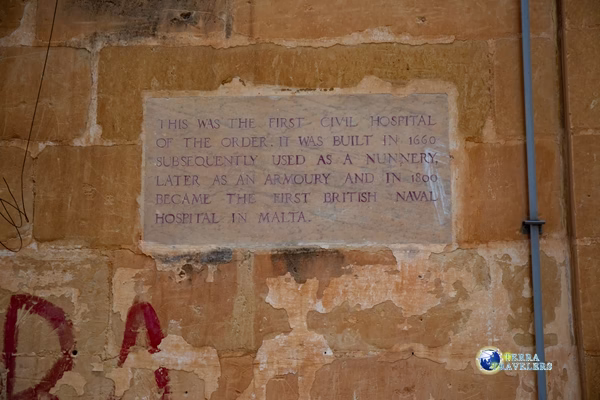 THIS WAS THE FIRST CIVIL HOSPITAL
OF THE ORDER. IT WAS BUILT IN 1660
SUBSEQUENTLY USED AS A NUNNERY,
LATER AS AN ARMOURY AND IN 1800
BECAME THE FIRST BRITISH NAVAL
HOSPITAL IN MALTA.
DA
TERRA
TRAVELERS